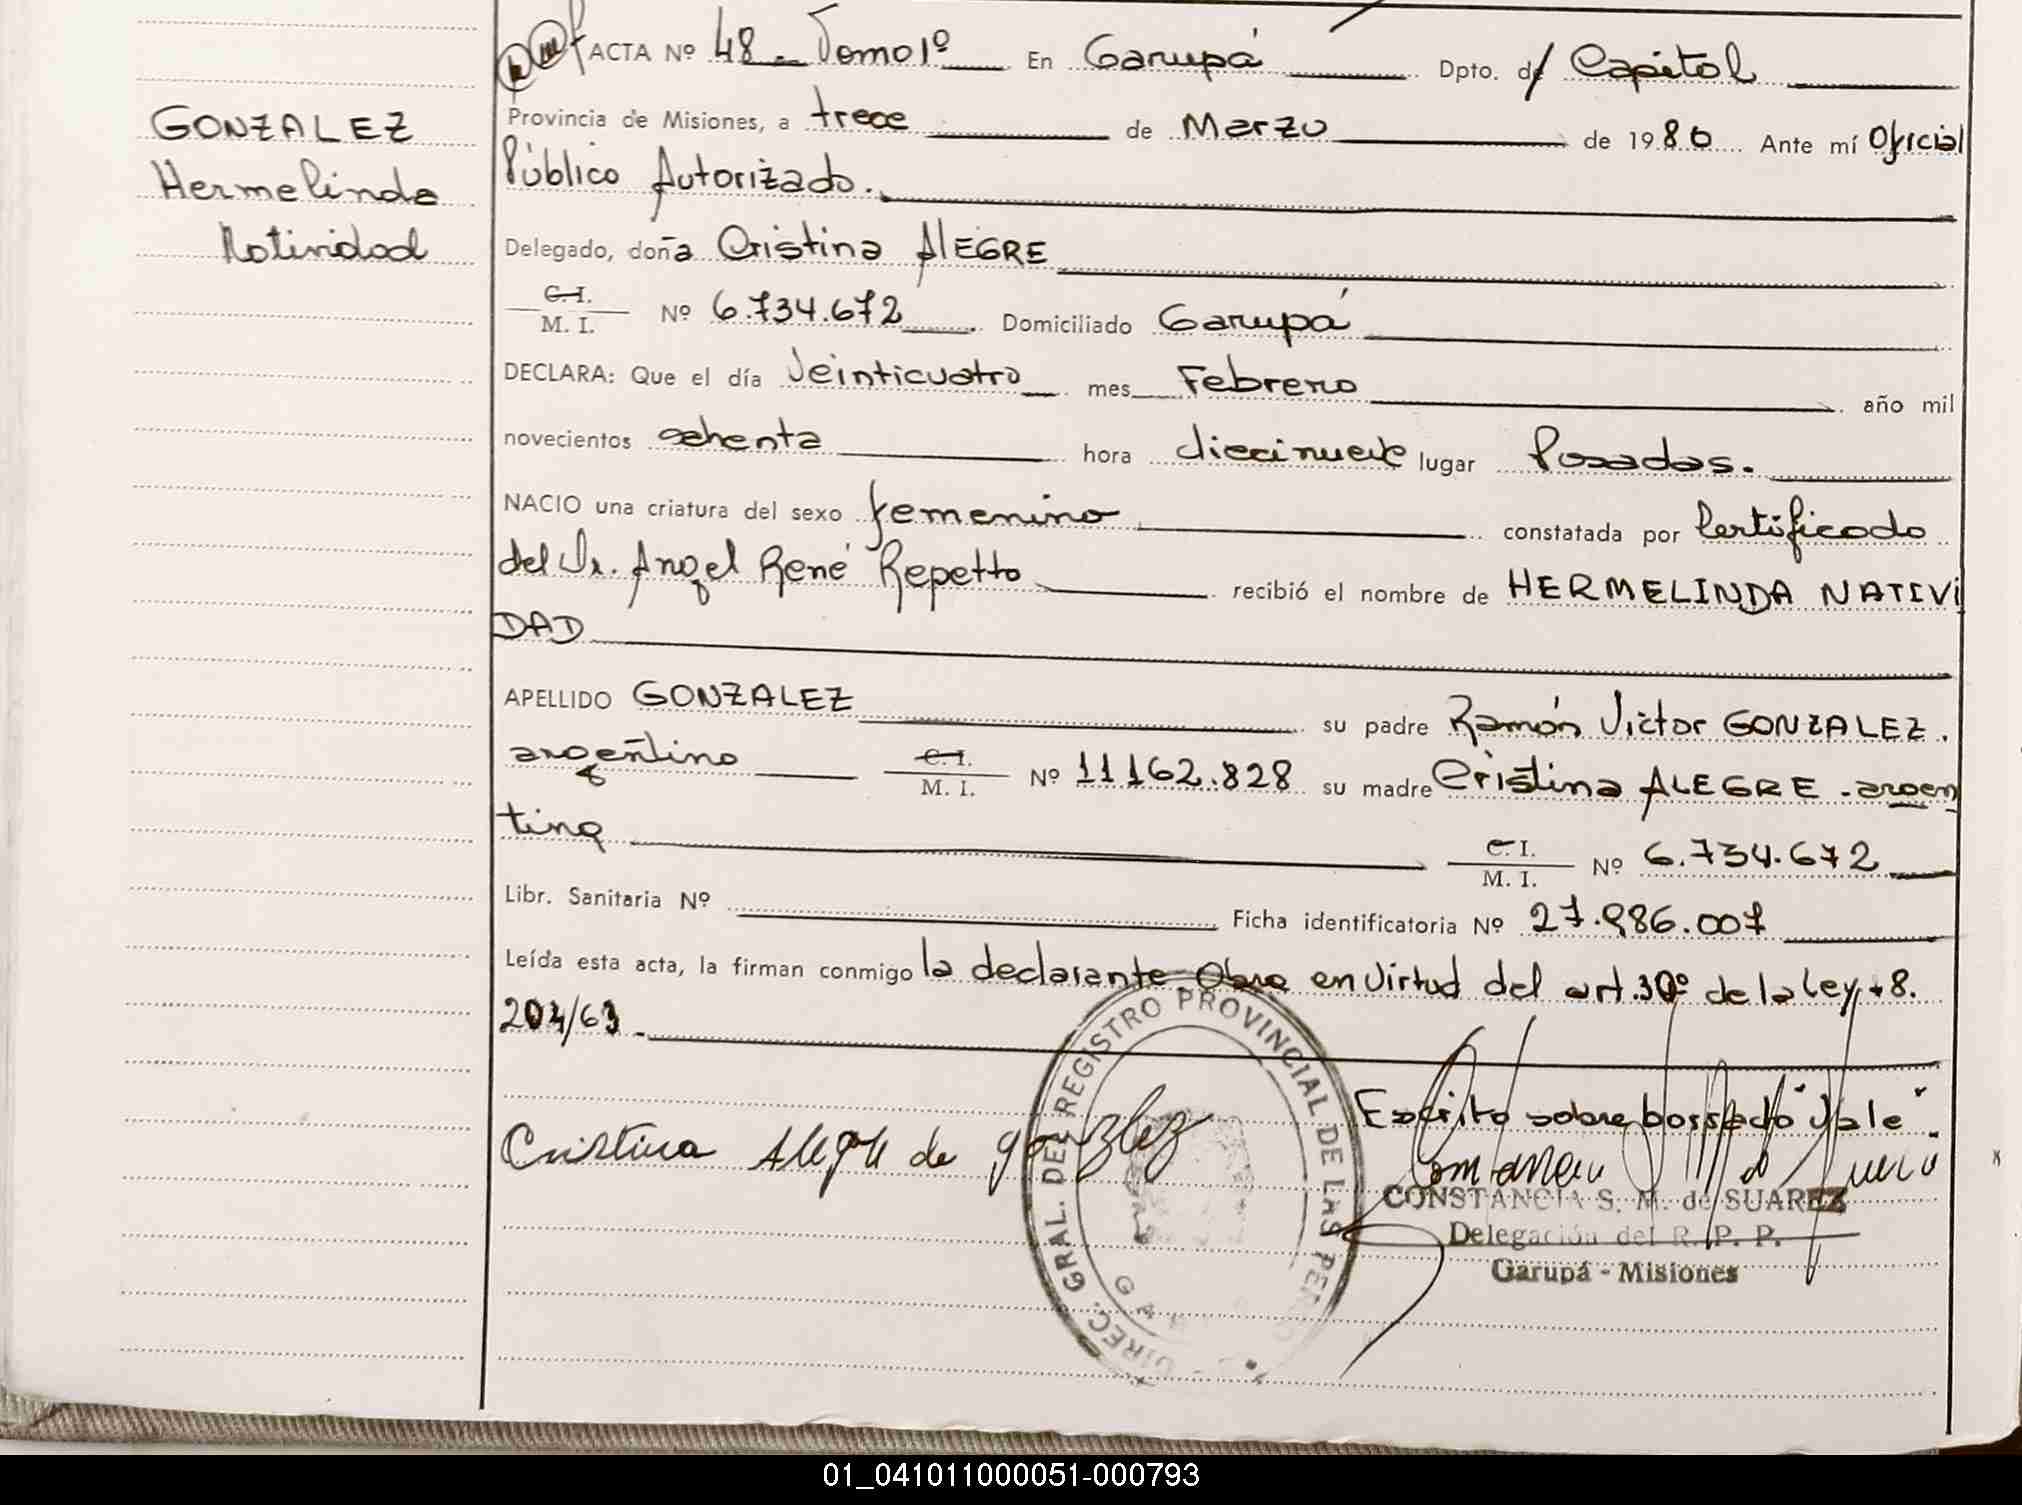 GONZALEZ
Hermelinda
Natividad
ACTA Nº 48 - Tomo 1º En Garupá Dpto. d/ Capital
Provincia de Misiones, a trece de Marzo de 1980 Ante mí Oficial
Público Autorizado.
Delegado, doña Cristina ALEGRE
C.I. / M. I. Nº 6.734.672 Domiciliado Garupá
DECLARA: Que el día Veinticuatro mes Febrero año mil
novecientos ochenta hora diecinueve lugar Posadas.
NACIO una criatura del sexo femenino constatada por Certificado
del Dr. Angel René Repetto recibió el nombre de HERMELINDA NATIVI
DAD
APELLIDO GONZALEZ su padre Ramón Victor GONZALEZ.
argentino C.I. / M. I. Nº 11162.828 su madre Cristina ALEGRE - argen
tina C.I. / M. I. Nº 6.734.672
Libr. Sanitaria Nº Ficha identificatoria Nº 27.986.007
Leída esta acta, la firman conmigo la declarante Obra en virtud del art. 30º de la Ley 18.
204/63
Escrito sobre borrado "Vale".
Cristina Alegre de González
DIREC. GRAL. DEL REGISTRO PROVINCIAL DE LAS PERS
CONSTANCIA S. M. de SUAREZ
Delegación del R. P. P.
Garupá - Misiones
01_041011000051-000793